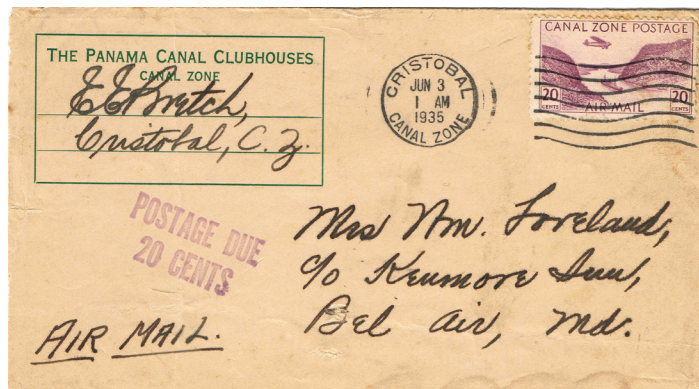 THE PANAMA CANAL CLUBHOUSES
CANAL ZONE
E E Bretch,
Cristobal, C. Z.
CRISTOBAL
JUN 3
1 AM
1935
CANAL ZONE
CANAL ZONE POSTAGE
20 CENTS
AIR MAIL
20 CENTS
POSTAGE DUE
20 CENTS
Mrs Wm. Loveland,
c/o Kenmore Inn,
Bel Air, Md.
AIR MAIL.